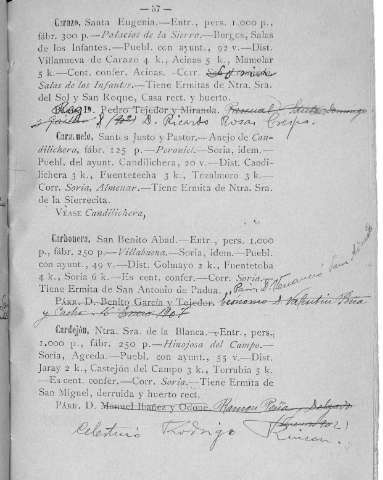 — 57 —
Carazo, Santa Eugenia.—Entr., pers. 1.000 p.,
fábr. 300 p.—Palacios de la Sierra.—Burgos, Salas
de los Infantes.—Puebl. con ayunt., 92 v.—Dist.
Villanueva de Carazo 4 k., Acinas 5 k., Mamolar
5 k.—Cent. confer. Acinas.—Corr.
Salas de los Infantes.—Tiene Ermitas de Ntra. Sra.
del Sol y San Roque, Casa rect. y huerto.
Pedro Tejedor y Miranda.
D. Ricardo Rosas Crespo
Carazuelo, Santos Justo y Pastor.—Anejo de Can-
dilichera, fábr. 125 p.—Peroniel.—Soria, idem.—
Puebl. del ayunt. Candilichera, 20 v.—Dist. Candi-
lichera 3 k., Fuentetecha 3 k., Tozalmoro 3 k.—
Corr. Soria, Almenar.—Tiene Ermita de Ntra. Sra.
de la Sierrecita.
VÉASE Candilichera,
Carbonera, San Benito Abad.—Entr., pers. 1.000
p., fábr. 250 p.—Villabuena.—Soria, idem.—Puebl.
con ayunt., 49 v.—Dist. Golmayo 2 k., Fuentetoba
4 k., Soria 6 k.—Es cent. confer.—Corr. Soria.—
Tiene Ermita de San Antonio de Padua.
PÁRR. D. Benito García y Tejedor. D Valentín
Enero 1907
Cardejón, Ntra. Sra. de la Blanca.—Entr., pers.,
1.000 p., fábr. 250 p.—Hinojosa del Campo.—
Soria, Agreda.—Puebl. con ayunt., 55 v.—Dist.
Jaray 2 k., Castejón del Campo 3 k., Torrubia 3 k.
—Es cent. confer.—Corr. Soria.—Tiene Ermita de
San Miguel, derruida y huerto rect.
PÁRR. D. Manuel Ibáñez y Odone. Ramon Peña y Delgado
Celestino Rodrigo Rincon.